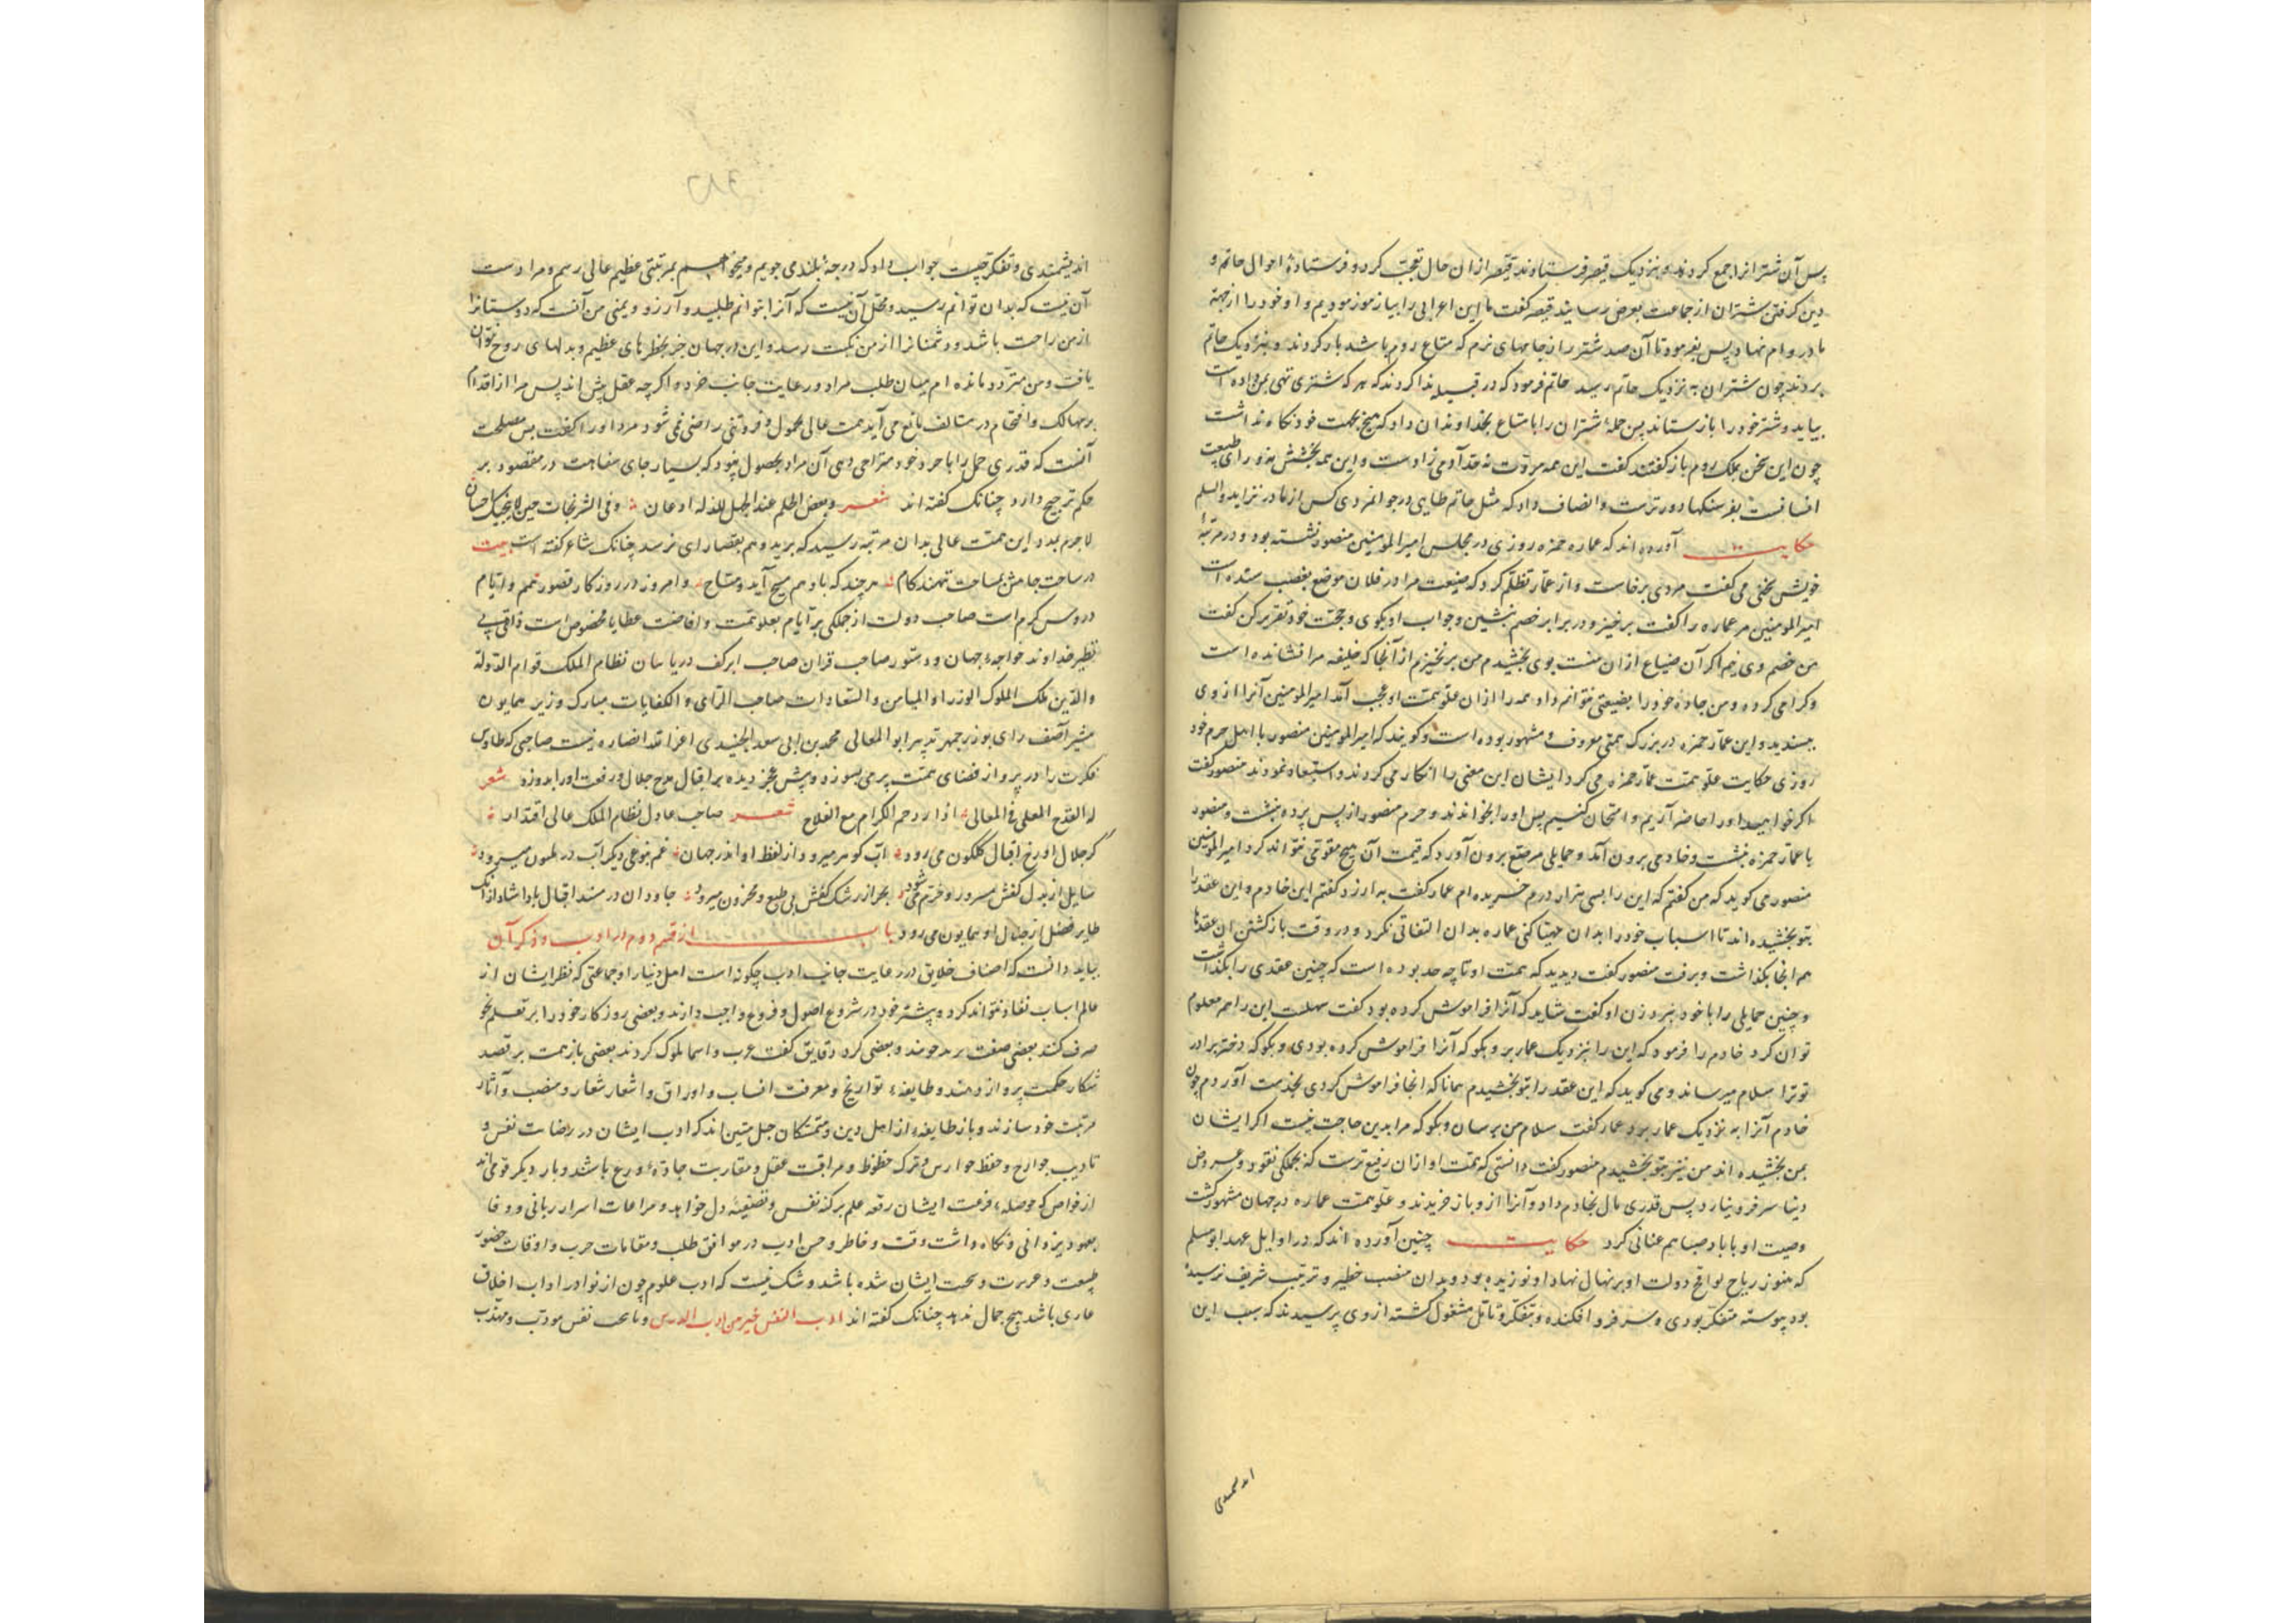 پس آن شتران را جمع کردند و بنزدیک قیصر فرستادند قیصر ازان حال تعجب کرد و فرستاده احوال حاتم و
دین کرفتن شتران از جماعت بعرض رسانید قیصر کفت ما این اعرابی را بیازمودیم و او خود را از جهة
ما در وام نهاد پس بفرمود تا آن صد شتر را از جامهای نرم که متاع روم باشد بار کردند و بنزدیک حاتم
بردند چون شتران به نزدیک حاتم رسید حاتم فرمود که در قبیله ندا کردند که هر که شتری تهی بمن داده است
بیاید و شتر خود را باز ستاند پس جمله شتران را با متاع بخداوندان داد که هیچ بجهت خود نکاه نداشت
چون این سخن بملک روم باز کفتند کفت این همه مروت نه حد آدمی زادست و این همه بخشش نه ورای طبیعت
انسانست بفرسنکها دورترست و انصاف داد که مثل حاتم طایی در جوانمردی کس از مادر نزاید والسلم
حکایت آورده اند که عماره حمزه روزی در مجلس امیر المومنین منصور نشسته بود و در مرتبهٔ
خویش سخن می کفت مردی برخاست و از عمار تظلم کرد که ضیعت مرا در فلان موضع بغصب ستده است
امیر المومنین مر عماره را کفت برخیز و در برابر خصم بنشین و جواب او بکوی و حجت خود تقریر کن کفت
من خصم وی نیم اکر آن ضیاع ازان منست بوی بخشیدم من برنخیزم از آنجا که خلیفه مرا نشانده است
و کرامی کرده و من جاه خود را بضیعتی نتوانم داد همه را ازان علو همت او عجب آمد امیر المومنین آنرا از وی
بپسندید و این عمار حمزه در بزرک همتی معروف و مشهور بوده است و کویند که امیر المومنین منصور با اهل حرم خود
روزی حکایت علو همت عمار حمزه می کرد ایشان این معنی را انکار می کردند و استبعاد نمودند منصور کفت
اکر خواهید او را حاضر آریم و امتحان کنیم پس او را بخواندند و حرم منصور از پس پرده بنشست و منصور
با عمار حمزه بنشست و خادمی برون آمد و حمایلی مرصع برون آورد که قیمت آن هیچ مقومی نتواند کرد امیر المومنین
منصور می کوید که من کفتم که این را بسی هزار درم خریده ام عمار کفت به ارزد کفتم این خادم و این عقد را
بتو بخشیده اند تا اسباب خود را بدان مهیا کنی عماره بدان التفاتی نکرد و در وقت باز کشتن ان عقدها
هم انجا بکذاشت و برفت منصور کفت دیدید که همت او تا چه حد بوده است که چنین عقدی را بکذاشت
و چنین حمایلی را با خود نبرد زن او کفت شاید که آنرا فراموش کرده بود کفت سهلست این را هم معلوم
توان کرد خادم را فرمود که این را بنزدیک عمار بر و بکو که آنرا فراموش کرده بودی و بکو که دختر برادر
تو ترا سلام میرساند و می کوید که این عقد را بتو بخشیدم همانا که انجا فراموش کردی بخدمت آوردم چون
خادم آنرا به نزدیک عمار برد عمار کفت سلام من برسان و بکو که مرا بدین حاجت نیست اکر ایشان
بمن بخشیده اند من نیز بتو بخشیدم منصور کفت دانستی که همت او ازان رفیع ترست که بجملکی نقود و عروض
دنیا سر فرو نیارد پس قدری مال بخادم داد و آنرا ازو باز خریدند و علو همت عماره در جهان مشهور کشت
وصیت او با باد صبا هم عنانی کرد حکایت چنین آورده اند که در اوایل عهد ابو مسلم
که هنوز ریاح لواقح دولت او بر نهال نهاد او نوزیده بود و بدان منصب خطیر و ترتیب شریف نرسیده
بود پیوسته متفکر بودی و سر فرو افکنده و بتفکر و تامل مشغول کشته از وی پرسیدند که سبب این
اندیشمندی و تفکر چیست جواب داد که درجهٔ بلند می جویم و میخواهم بمرتبتی عظیم عالی رسم و مرا دست
آن نیست که بدان توانم رسید و محل آن نیست که آنرا بتوانم طلبید و آرزو و یمنی من آنست که دوستانرا
از من راحت باشد و دشمنانرا از من نکبت رسد و این در جهان جز بخطرهای عظیم و بدلهای روح نتوان
یافت و من متردد مانده ام میان طلب مراد و رعایت جانب خرد و اکرچه عقل پیش اندیس مرا از اقدام
بر مهالک و اقتحام در متالف مانع می آید همت عالی بخمول و فروتنی راضی نمی شود مرد او را کفت پس مصلحت
آنست که قدری جهل را با خرد خود مزاحمی دهی آن مراد بحصول پیوندد که بسیار جای سفاهت در مقصود بر
حکم ترجیح دارد چنانک کفته اند شعر وبعض الحلم عند الجهل للذلة اذعان وفی الشر نجات حین لا ینجیک احسان
لاجرم بدو این همت عالی بدان مرتبه رسید که برید وهم بقصارای نرسد چنانک شاعر کفته است بیت
در ساحت جامش بمساحت ننهند کام هر چند که با وهم مسیح آید و مساح و امروز در روزکار قصور همم و ایام
دروس کرم است صاحب دولت از جملکی بر ایام بعلو همت و افاضت عطایا مخصوص است ذات بی
نظیر خداوند خواجهٔ جهان و دستور صاحب قران صاحب ابر کف دریا سان نظام الملک قوام الدولة
والدین ملک الملوک الوزرا و المیامن و السعادات صاحب الرای و الکفایات مبارک وزیر همایون
مشیر آصف رای بوزرجمهر تدبیر ابو المعالی محمد بن ابی سعد الجنیدی اعز الله انصاره نیست صاحبی که طاوس
فکرت را در پرواز فضای همت پر می بسوزد و پیش عجز دیده بر اقبال مدح جلال و رفعت او را بدوزد شعر
له القدح المعلی فی المعالی اذا ازدحم الکرام مع القداح شعر صاحب عادل نظام الملک عالی اقتدار
کز جلال او رخ اقبال کلکون می رود آب کوهر میرود از لفظ او اندر جهان غم بنوعی دیکر آب در میرود
سایل از بذل کفش مسرور و خرم می شود بحر از رشک کفش بی طبع و محزون میرود جاودان در مسند اقبال بادا شاد ازانک
طایر فضل از جلال او همایون می رود باب از قسم دوم در ادب و ذکر آن
بباید دانست که اصناف خلایق در رعایت جانب ادب چکونه است اهل دنیا را و جماعتی که نظر ایشان از
عالم اسباب نفاذ نتواند کرد و پیشتر خود در شروع اصول و فروع واجب دارند و بعضی روزکار خود را بر تعلم نحو
صرف کنند بعضی صنعت و بعضی کرد دقایق کفت عرب و اسما ملوک کردند بعضی باز همت بر قصد
شکار حکمت پرواز دهند و طایفهٔ تواریخ و معرفت انساب و اوراق و اشعار شعار و منصب و آثار
مرتبت خود سازند و باز طایفهٔ از اهل دین و متمسکان حبل متین اند که ادب ایشان در ریاضات نفس و
تادیب جوارح و حفظ حوارس و ترک حظوظ و مراقبت عقل و مقاربت جادهٔ ورع باشد و بار دیکر قومی اند
از خواص که حوصلهٔ ایشان رقعه علم بر کنه نفس و تصفیهٔ دل خواهد و مراعات اسرار ربانی و وفا
بعهود یزدانی و نکاه داشت وقت و خاطر و حسن ادب در مواقف طلب و مقامات حرب و اوقات حضور
طبیعت و ایشان شده باشد و شک نیست که ادب علوم چون از نوادر اداب اخلاق
عاری باشد هیچ جمال ندهد چنانک کفته اند ادب النفس خیر من ادب الدرس و نفس مودب و مهذب